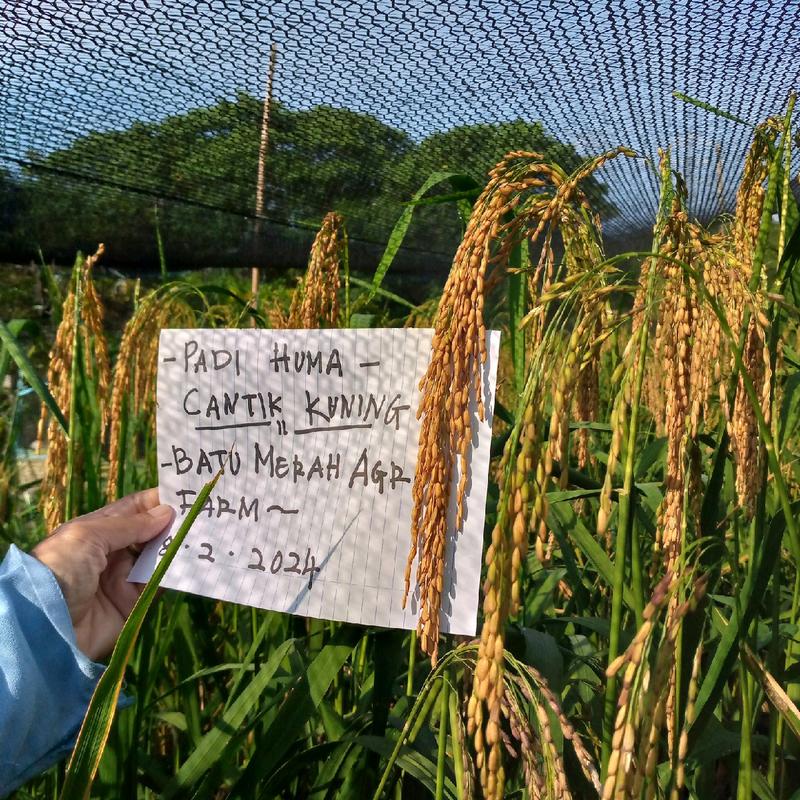 - PADI HUMA -
CANTIK KUNING
- BATU MERAH AGR
FARM ~
8.2.2024